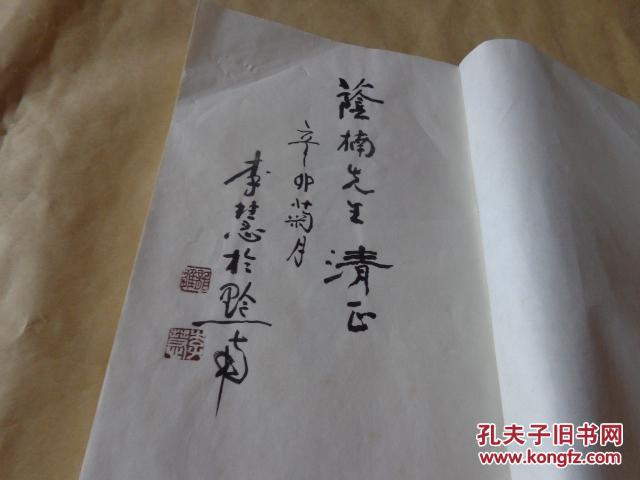 蔭楠先生清正
辛卯菊月
李慧於黔南
孔夫子旧书网
www.kongfz.com